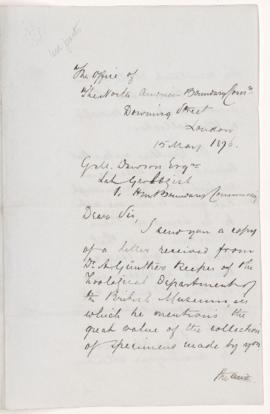 The Office of
The North American Boundary Comn
Downing Street
London
15 May 1876
G. M. Dawson Esqre
Late Geologist
to H.M. Boundary Commission
Dear Sir,
I send you a copy
of a letter received from
Dr A. Günther Keeper of the
Zoological Department of
the British Museum, in
which he mentions the
great value of the collection
of specimens made by you